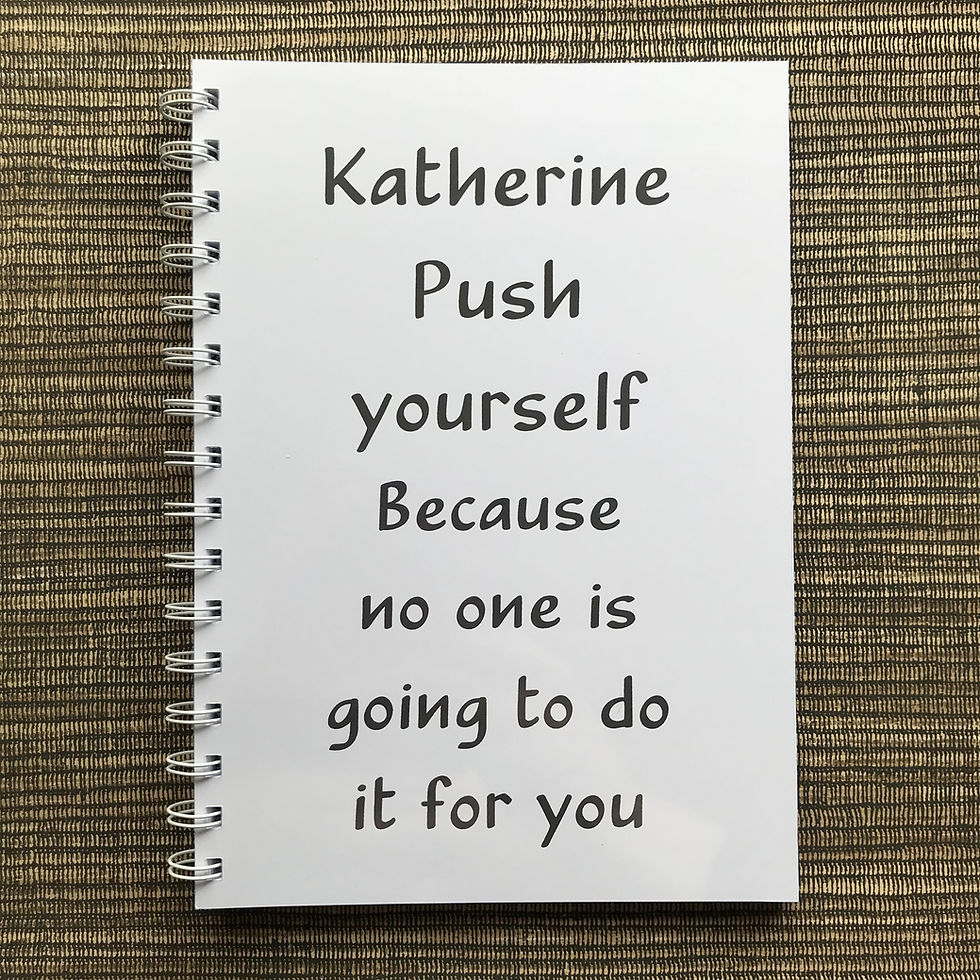 Katherine
Push
yourself
Because
no one is
going to do
it for you